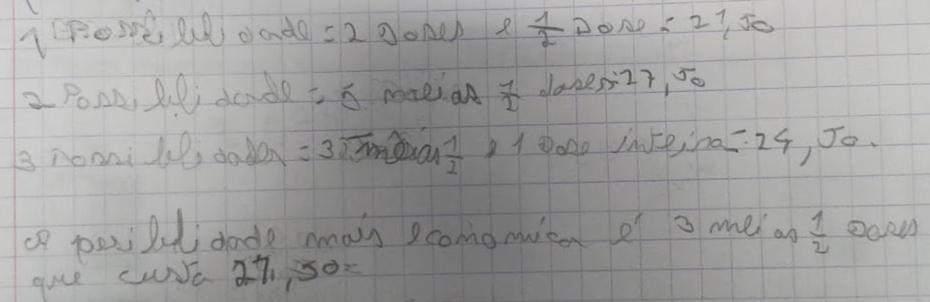 1 Possibilidade = 2 Doses e 1/2 Dose = 21,50
2 Possibilidade = 5 meias 1/2 doses = 27,50
3 Possibilidades = 3 meias 1/2 e 1 Dose inteira = 24,50.
A posibilidade mais economica é 3 meias 1/2 Doses
que custa 27,50=